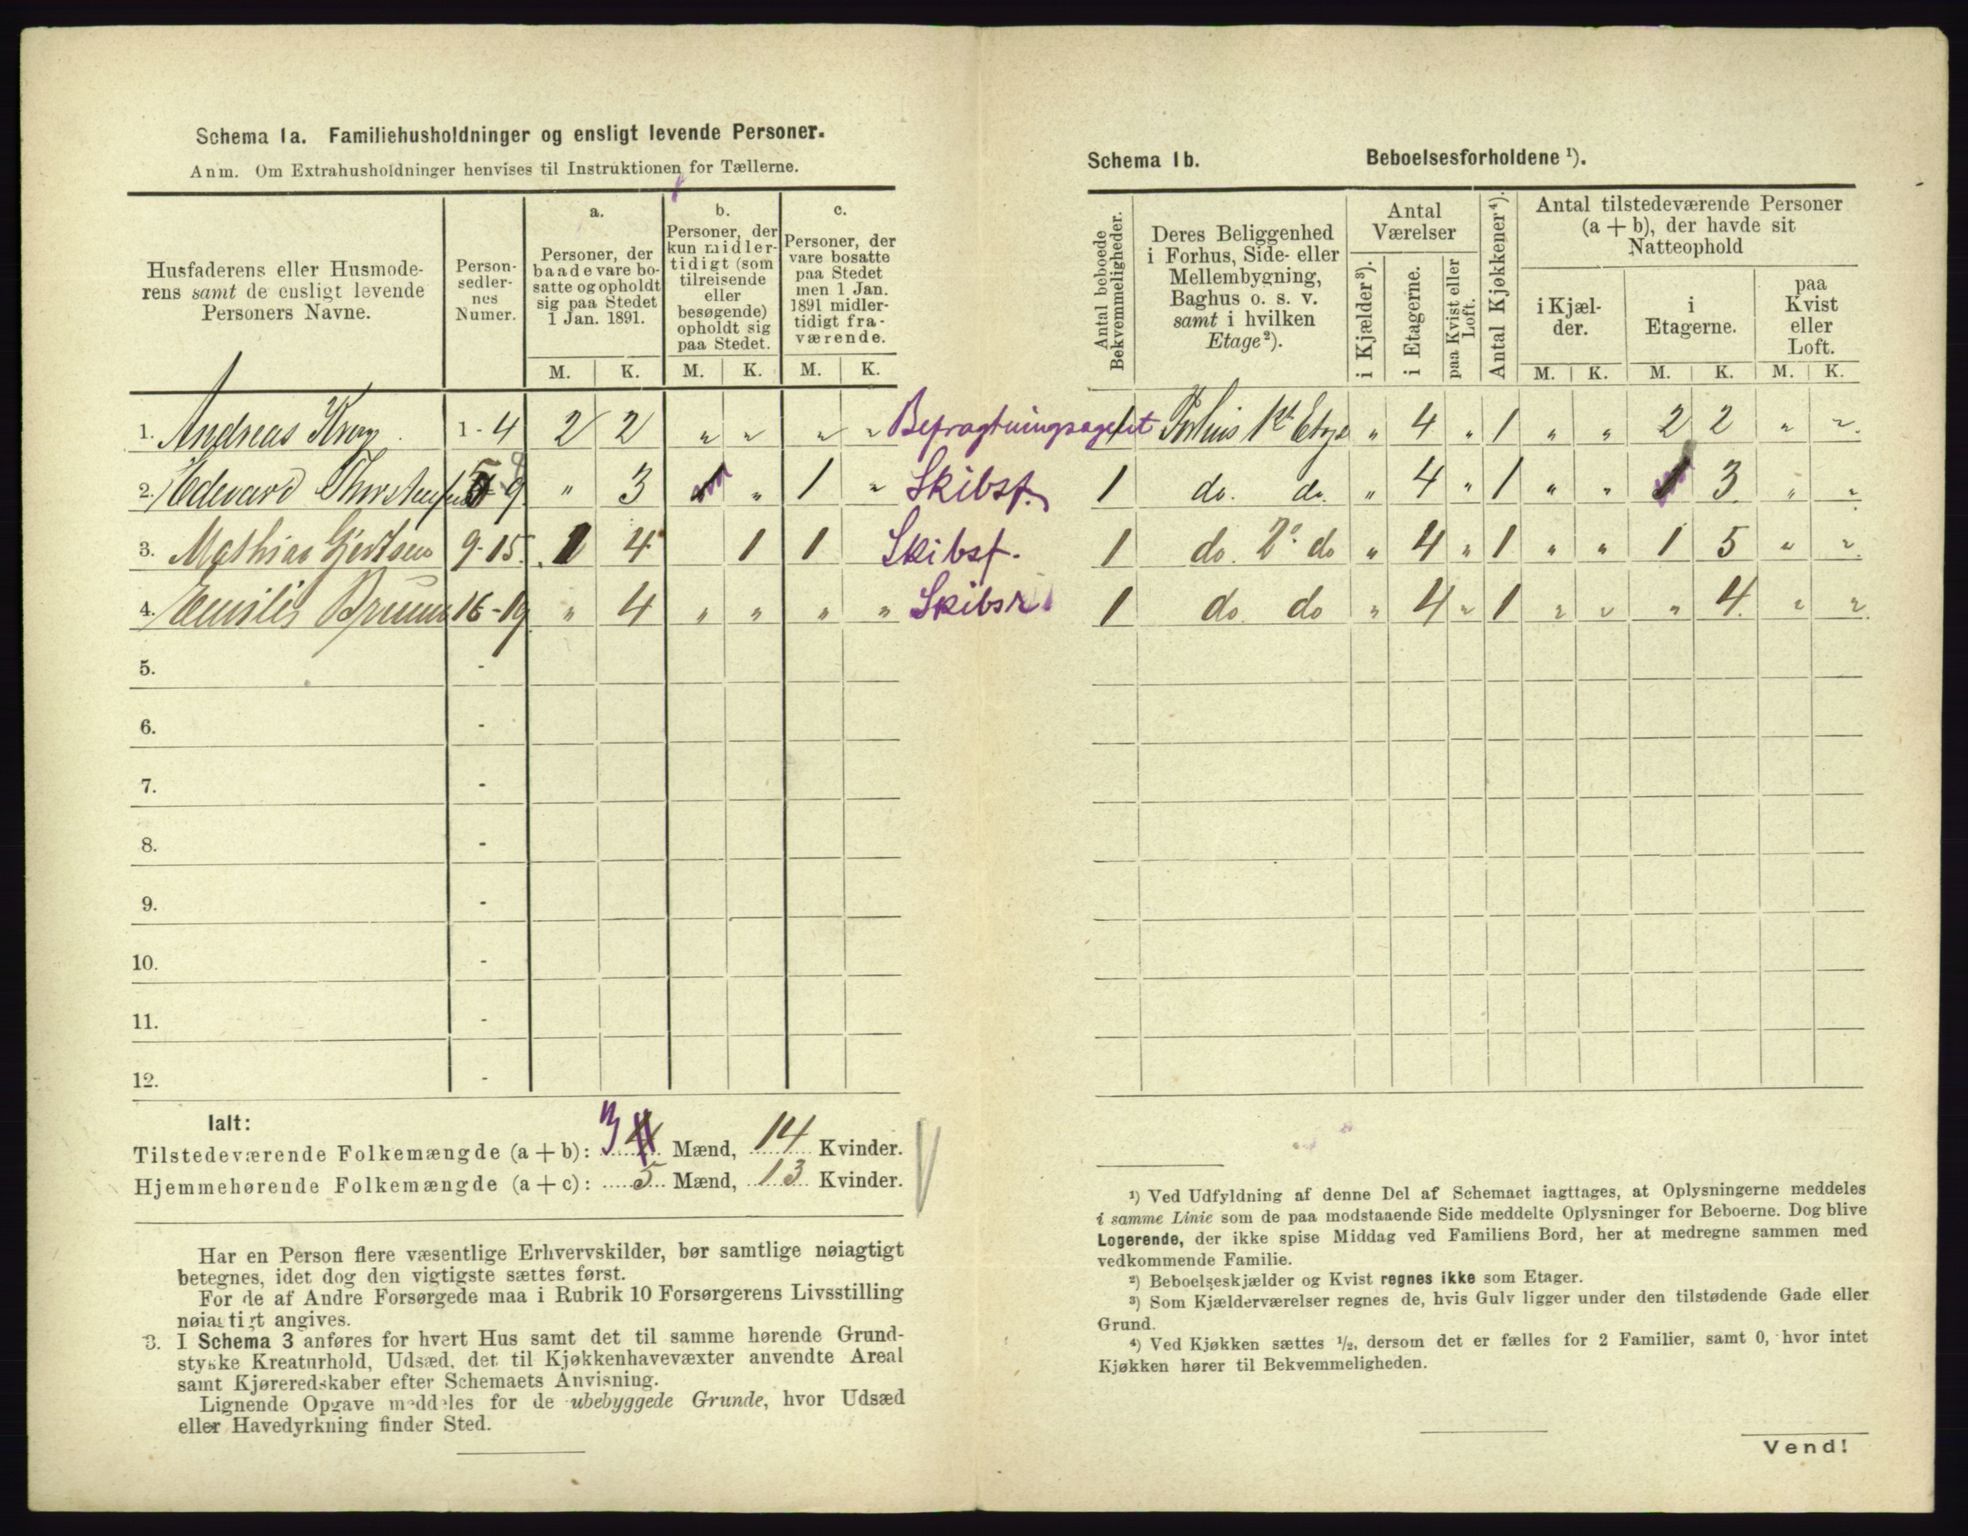 Schema 1a. Familiehusholdninger og ensligt levende Personer.
Anm. Om Extrahusholdninger henvises til Instruktionen for Tællerne.
Husfaderens eller Husmoderens samt de ensligt levende Personers Navne.
Personsedlernes Numer.
a. Personer, der baade vare bosatte og opholdt sig paa Stedet 1 Jan. 1891.
b. Personer, der kun midlertidigt (som tilreisende eller besøgende) opholdt sig paa Stedet.
c. Personer, der vare bosatte paa Stedet men 1 Jan. 1891 midlertidigt fraværende.
M. K. M. K. M. K.
1. Andreas Krog 1 - 4 2 2 " " " " Befragtningsagent
2. Edevard 9 " 3 " 1 " Skibsf.
3. Mathias Gjertsen 9-15. 1 4 1 1 Skibsf.
4. Emilis Bruun 16-19 " 4 " " " " Skibsr
5. -
6. -
7. -
8. -
9. -
10. -
11. -
12. -
Ialt:
Tilstedeværende Folkemængde (a + b): 3 4 Mænd, 14 Kvinder.
Hjemmehørende Folkemængde (a + c): 5 Mænd, 13 Kvinder.
Har en Person flere væsentlige Erhvervskilder, bør samtlige nøiagtigt
betegnes, idet dog den vigtigste sættes først.
For de af Andre Forsørgede maa i Rubrik 10 Forsørgerens Livsstilling
nøiagtigt angives.
3. I Schema 3 anføres for hvert Hus samt det til samme hørende Grund-
stykke Kreaturhold, Udsæd, det til Kjøkkenhavevæxter anvendte Areal
samt Kjøreredskaber efter Schemaets Anvisning.
Lignende Opgave meddeles for de ubebyggede Grunde, hvor Udsæd
eller Havedyrkning finder Sted.
Schema 1b. Beboelsesforholdene ¹).
Antal beboede Bekvemmeligheder.
Deres Beliggenhed i Forhus, Side- eller Mellembygning, Baghus o. s. v. samt i hvilken Etage²).
Antal Værelser
i Kjælder³).
i Etagerne.
paa Kvist eller Loft.
Antal Kjøkkener⁴).
Antal tilstedeværende Personer (a + b), der havde sit Natteophold
i Kjælder.
i Etagerne.
paa Kvist eller Loft.
M. K. M. K. M. K.
1 Forhus 1st Etage " 4 " 1 " " 2 2 " "
1 do. do. " 4 " 1 " " 1 3 " "
1 do. 2. do " 4 " 1 " " 1 5 " "
1 do. do " 4 " 1 " " " 4. " "
¹) Ved Udfyldning af denne Del af Schemaet iagttages, at Oplysningerne meddeles
i samme Linie som de paa modstaaende Side meddelte Oplysninger for Beboerne. Dog blive
Logerende, der ikke spise Middag ved Familiens Bord, her at medregne sammen med
vedkommende Familie.
²) Beboelseskjælder og Kvist regnes ikke som Etager.
³) Som Kjælderværelser regnes de, hvis Gulv ligger under den tilstødende Gade eller
Grund.
⁴) Ved Kjøkken sættes ½, dersom det er fælles for 2 Familier, samt 0, hvor intet
Kjøkken hører til Bekvemmeligheden.
Vend!